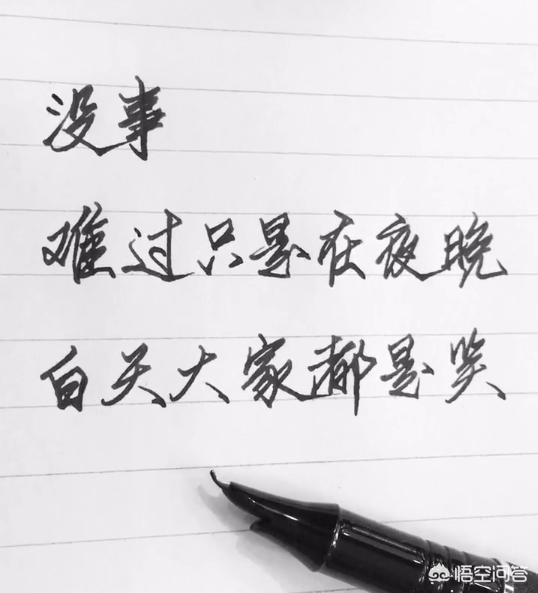 没事
难过只是在夜晚
白天大家都是笑
悟空问答